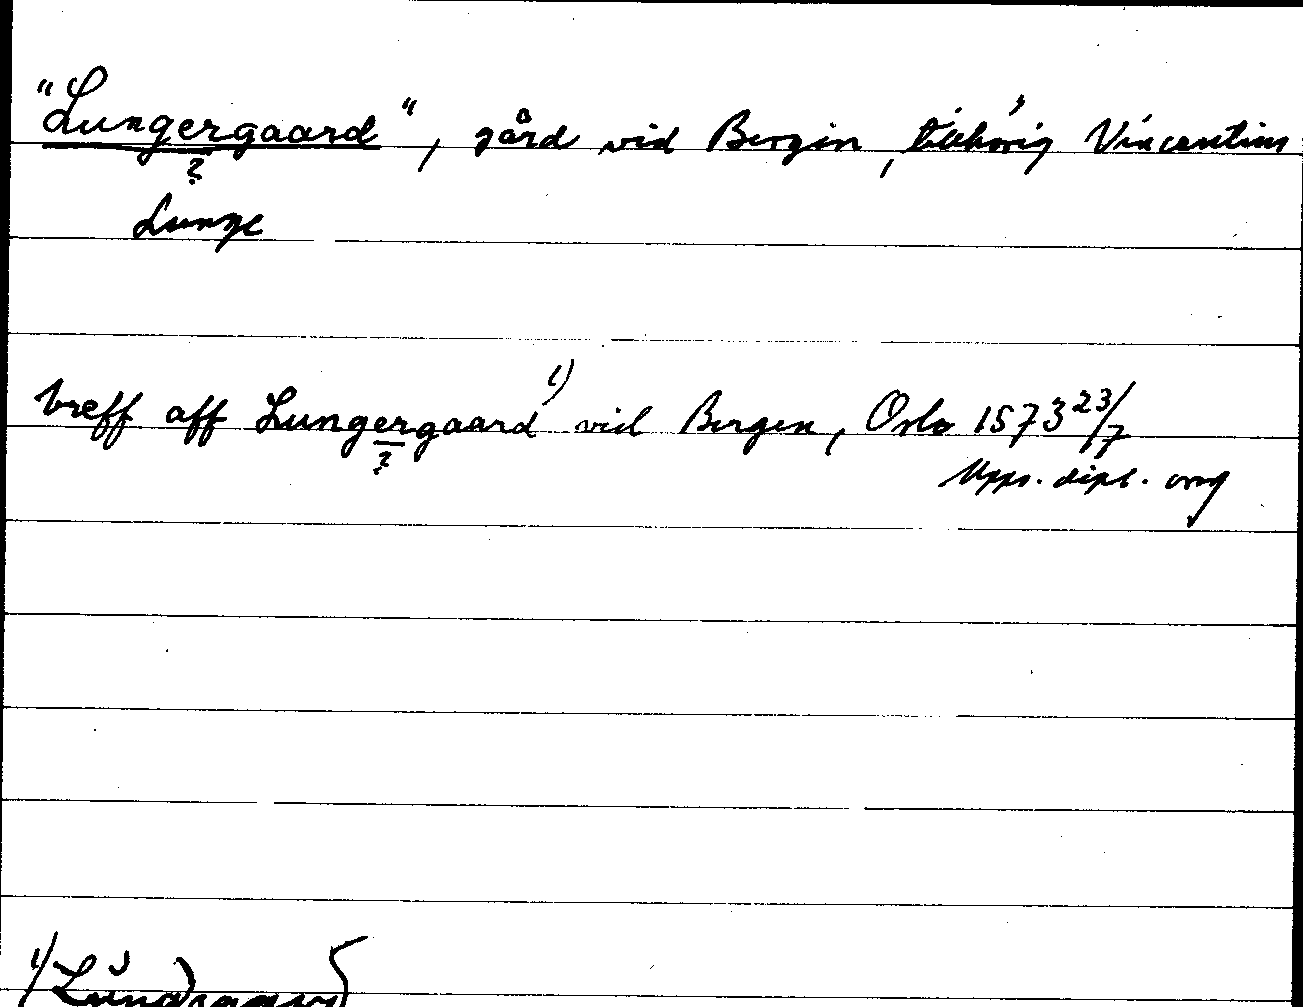 "Lungergaard", gård vid Bergen, tillhörig Vincentius
?
Lunge
breff aff Lungergaard 1) vid Bergen, Oslo 1573 23/7
?
Upps. dipl. orig
1)